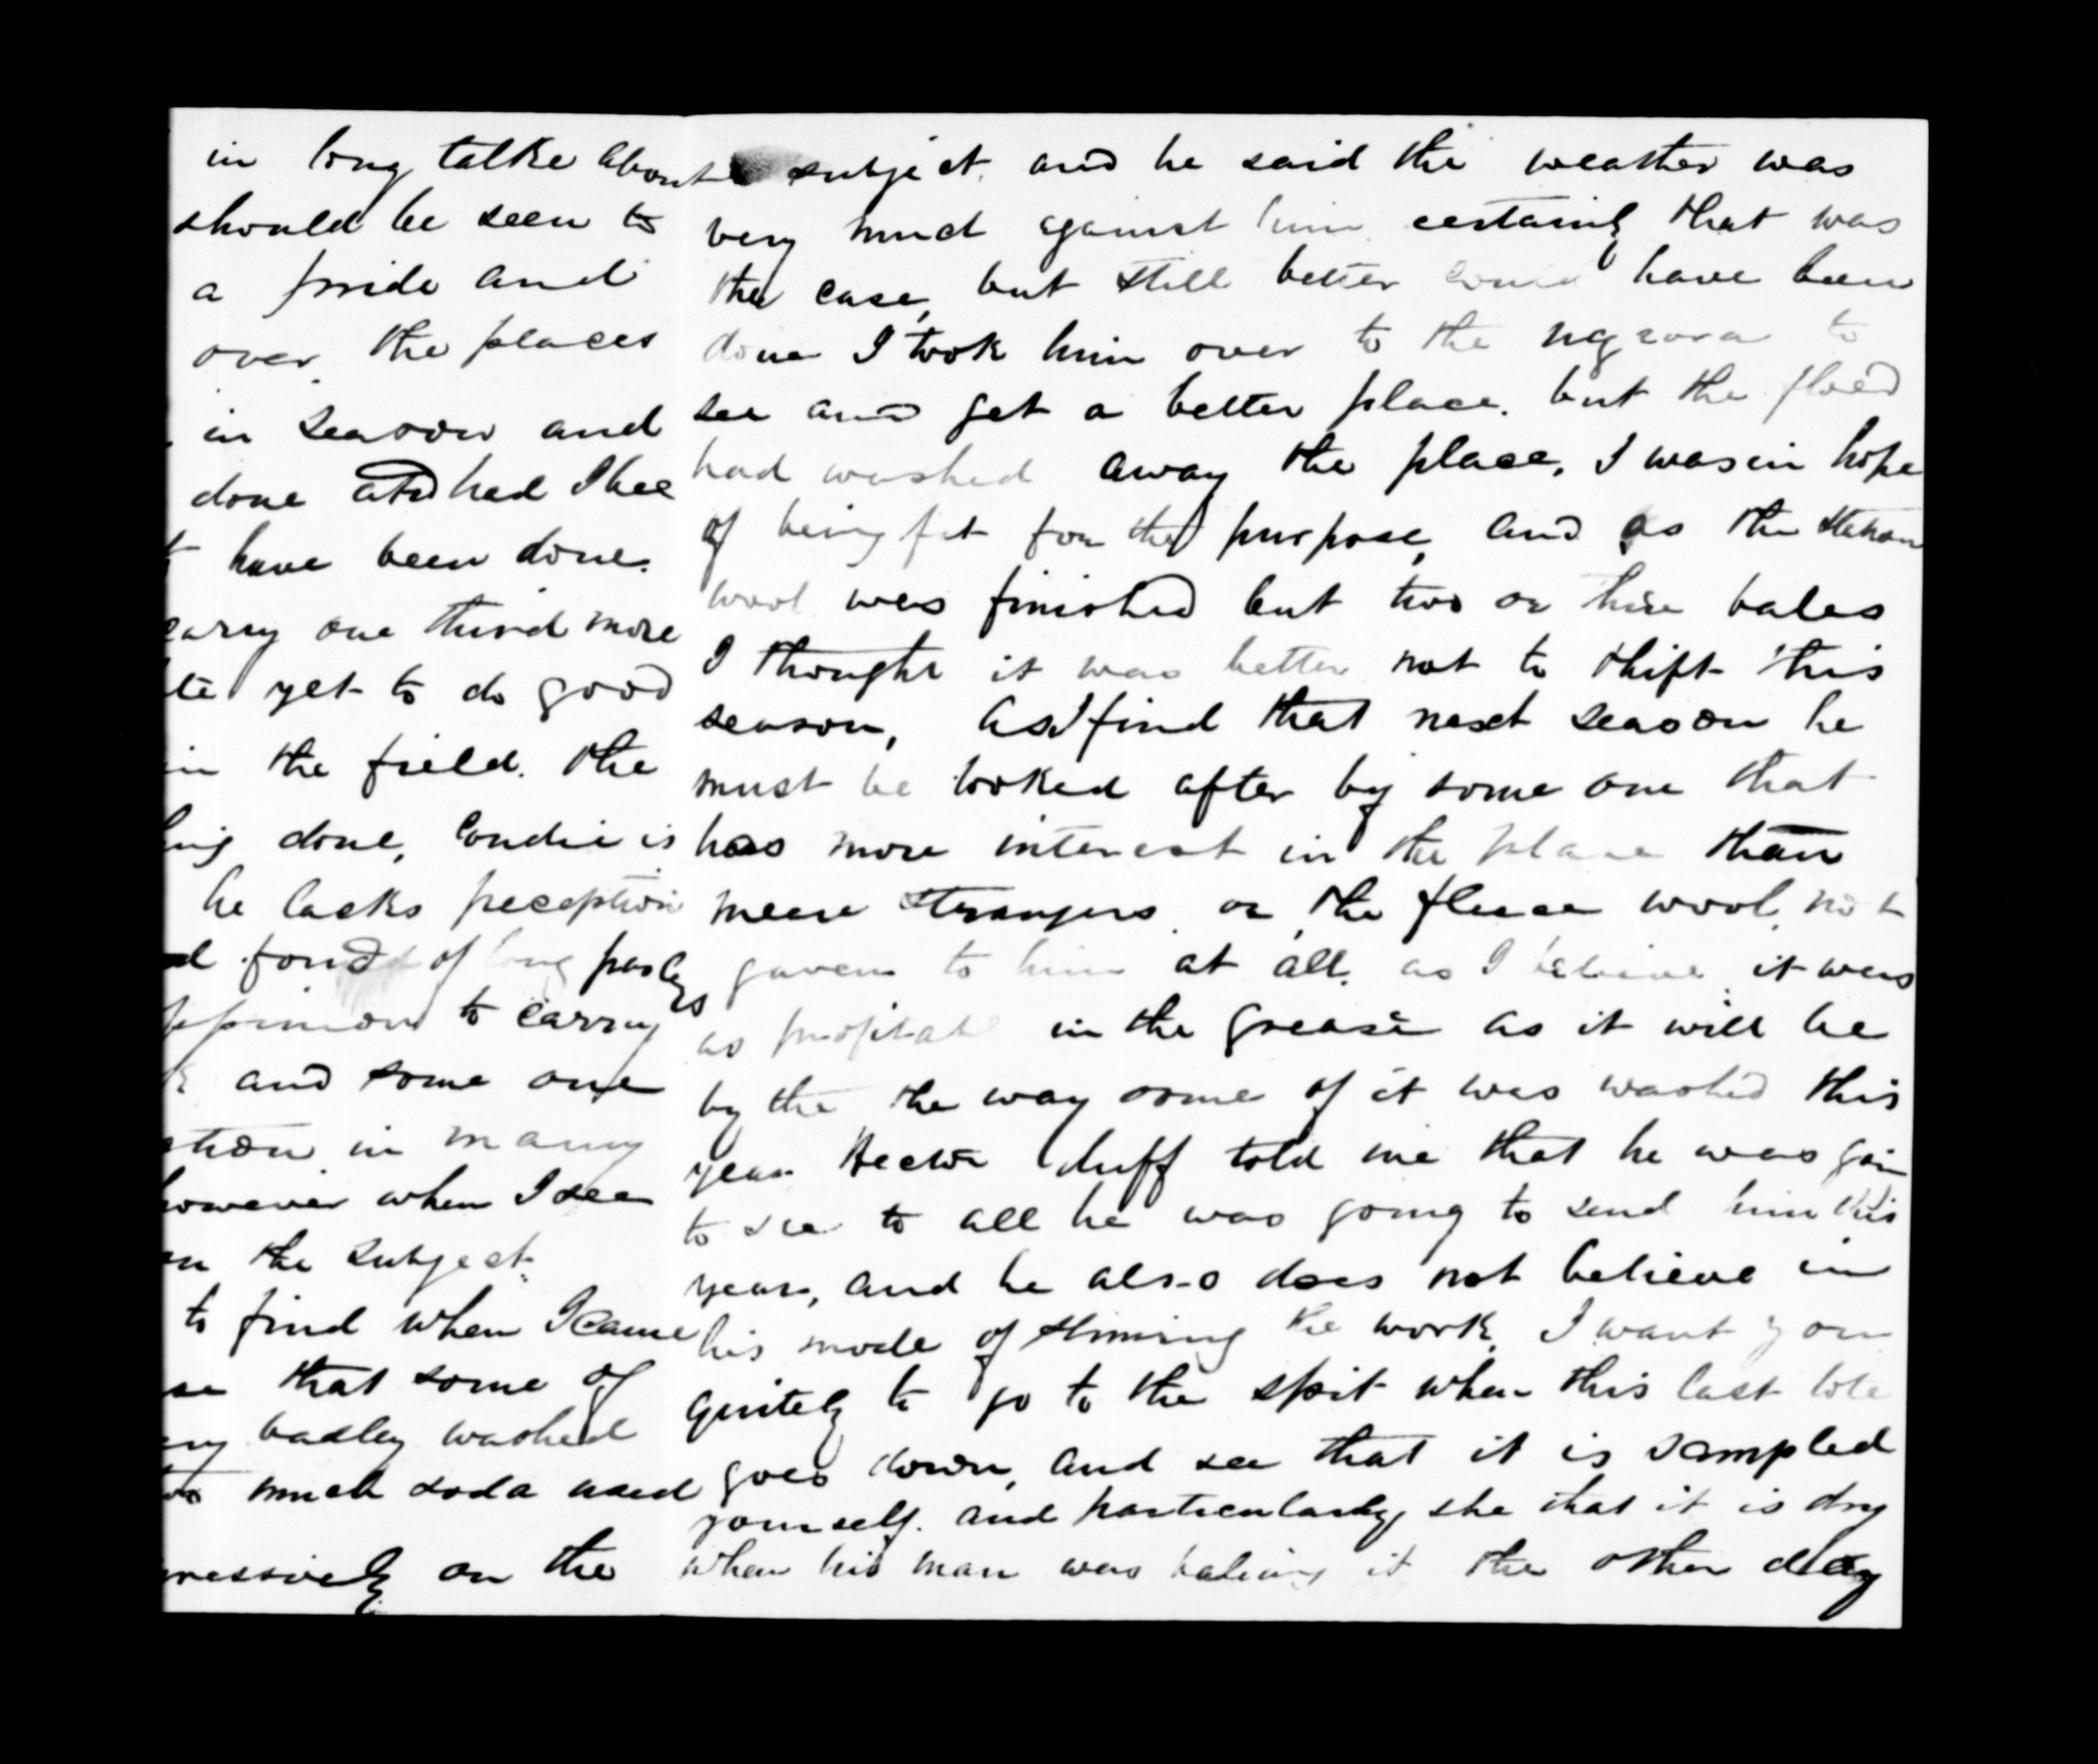 in long talke about
should be seen to
a pride and
over the places
in season and
done and had I bee
have been done.
carry one third more
te yet to do good
in the field. the
ing done, Condie is
he lacks preception
d fond of long parleys
ppinion to carry
and some one
ation in many
however when I see
on the subject.
to find when I came
se that some of
ery badley washed
too much soda used
gressively on the
subject. and he said the weather was
very much against him certainly that was
the case, but still better could have been
done I took him over to the to
see and get a better place. but the flood
had washed away the place, I was in hope
of being fit for the purpose, and as the station
wool was finished but two or three bales
I thought it was better not to shift this
season, as I find that next season he
must be looked after by some one that
has more interest in the place than
meere strangers or the fleece wool, not
gaven to him at all. as I believe it was
as profitabl in the grease as it will be
by the the way some of it was washed this
year Hector duff told me that he was goin
to see to all he was going to send him this
year, and he also does not believe in
his mode of the work, I want you
quitely to go to the spit when this last lote
goes down, and see that it is sampled
yourself. and particularly, she that it is dry
when his man was baling it the other day